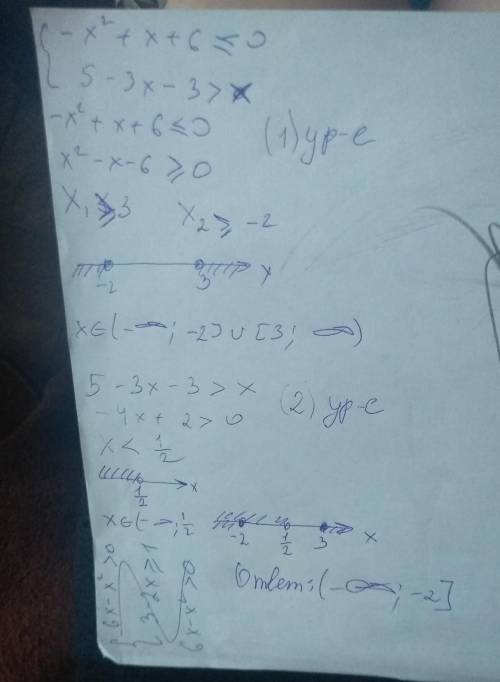 { -x² + x + 6 ≤ 0
5 - 3x - 3 > x
-x² + x + 6 ≤ 0 (1) ур-е
x² - x - 6 ≥ 0
x₁ ≥ 3 x₂ ≥ -2
-2 3 x
x∈(-∞; -2]∪[3; ∞)
5 - 3x - 3 > x (2) ур-е
-4x + 2 > 0
x < 1/2
1/2 x
x∈(-∞; 1/2 -2 1/2 3 x
Ответ: (-∞; -2]
{ 6x - x² > 0
{ 3 - 2x ≥ 1